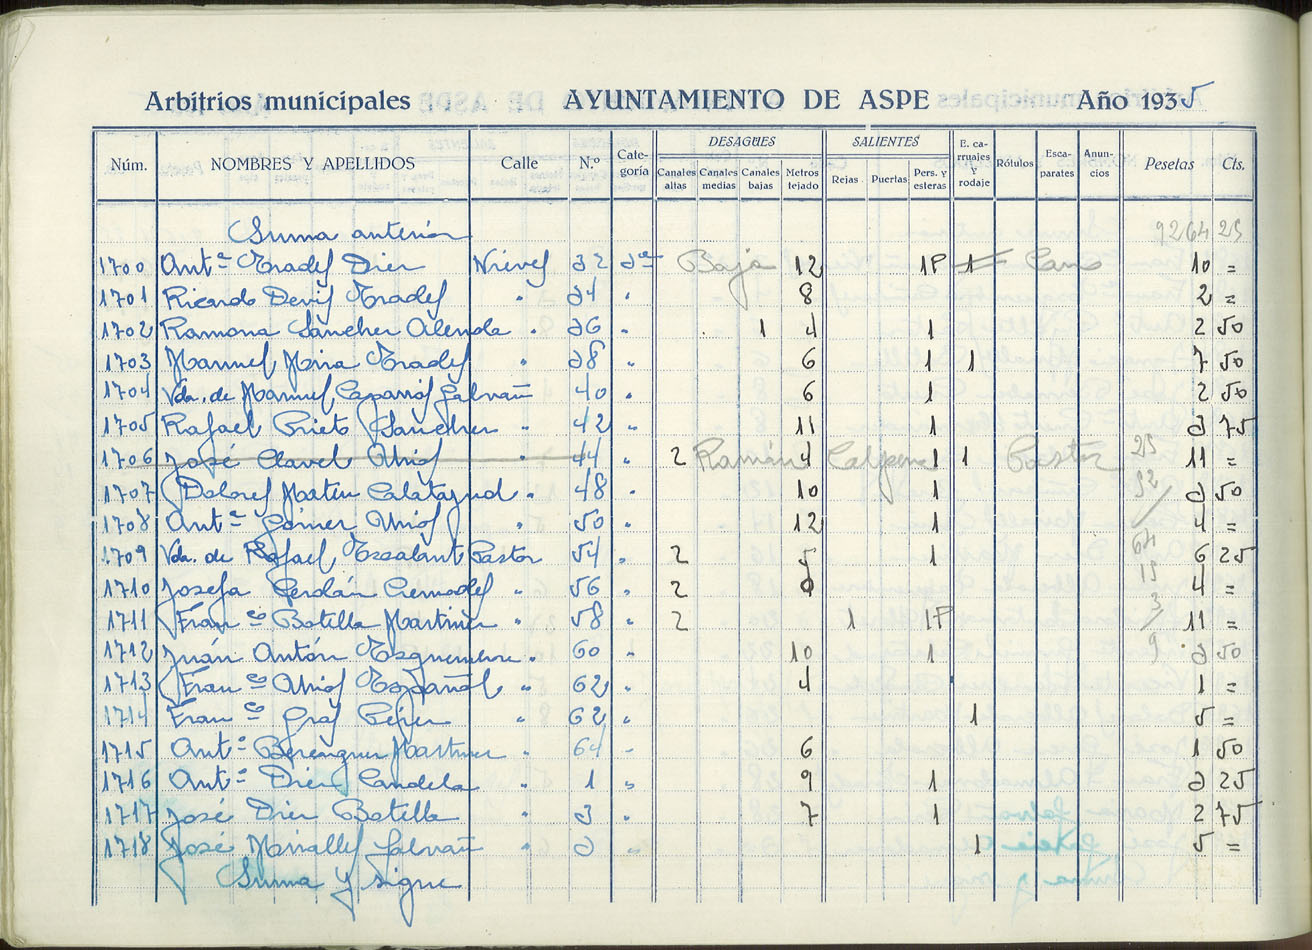 Arbitrios municipales AYUNTAMIENTO DE ASPE Año 1935
DESAGÜES SALIENTES
Núm. NOMBRES Y APELLIDOS Calle N.º Cate-goría Canales altas Canales medias Canales bajas Metros tejado Rejas. Puertas Pers. y esteras E. ca-rruajes y rodaje Rótulos Esca-parates Anun-cios Pesetas Cts.
Suma anterior 9264 25
1700 Antº Prades Diez Nieves 32 3ª Baja 12 1P 1 Cano 10 =
1701 Ricardo Devis Prades " 34 " 8 2 =
1702 Ramona Sánchez Alenda " 36 " 1 4 1 2 50
1703 Manuel Mira Prades " 38 " 6 1 1 7 50
1704 Vda. de Manuel Caparrós Galvañ 40 " 6 1 2 50
1705 Rafael Prieto Sánchez " 42 " 11 1 3 75
1706 José Clavel Uriof 44 " 2 Ramón 4 Calpena 1 1 Pastor 11 =
1707 Dolores Martín Calatayud " 48 " 10 1 3 50
1708 Antº Gómez " 50 " 12 1 4 =
1709 Vda. de Rafael Pastor 54 " 2 5 1 6 25
1710 Josefa Cerdán Cremades " 56 " 2 4 =
1711 Franco Botella Martínez " 58 " 2 1 1P 11 =
1712 Juán Antón " 60 " 10 1 3 50
1713 Franco Español " 62 " 4 1 =
1714 Franco Gras Pérez " 62 " 1 5 =
1715 Antº Berenguer Martínez " 64 " 6 1 50
1716 Antº Diez Candela " 1 " 9 1 3 25
1717 José Diez Botella " 3 " 7 1 2 75
1718 José Miralles Galvañ " 3 " 1 5 =
Suma y sigue